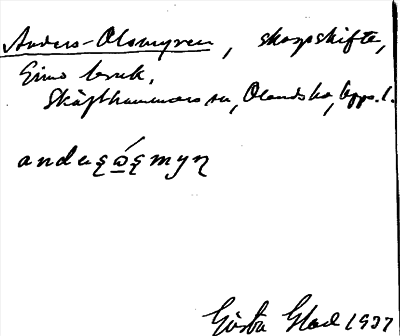 Anders-Olsmyren, skogsskifte,
Gimo bruk.
Skäfthammars sn, Olands hd, Upps. l.
andȧʂώ̲ʂmyη
Gösta Glad 1937